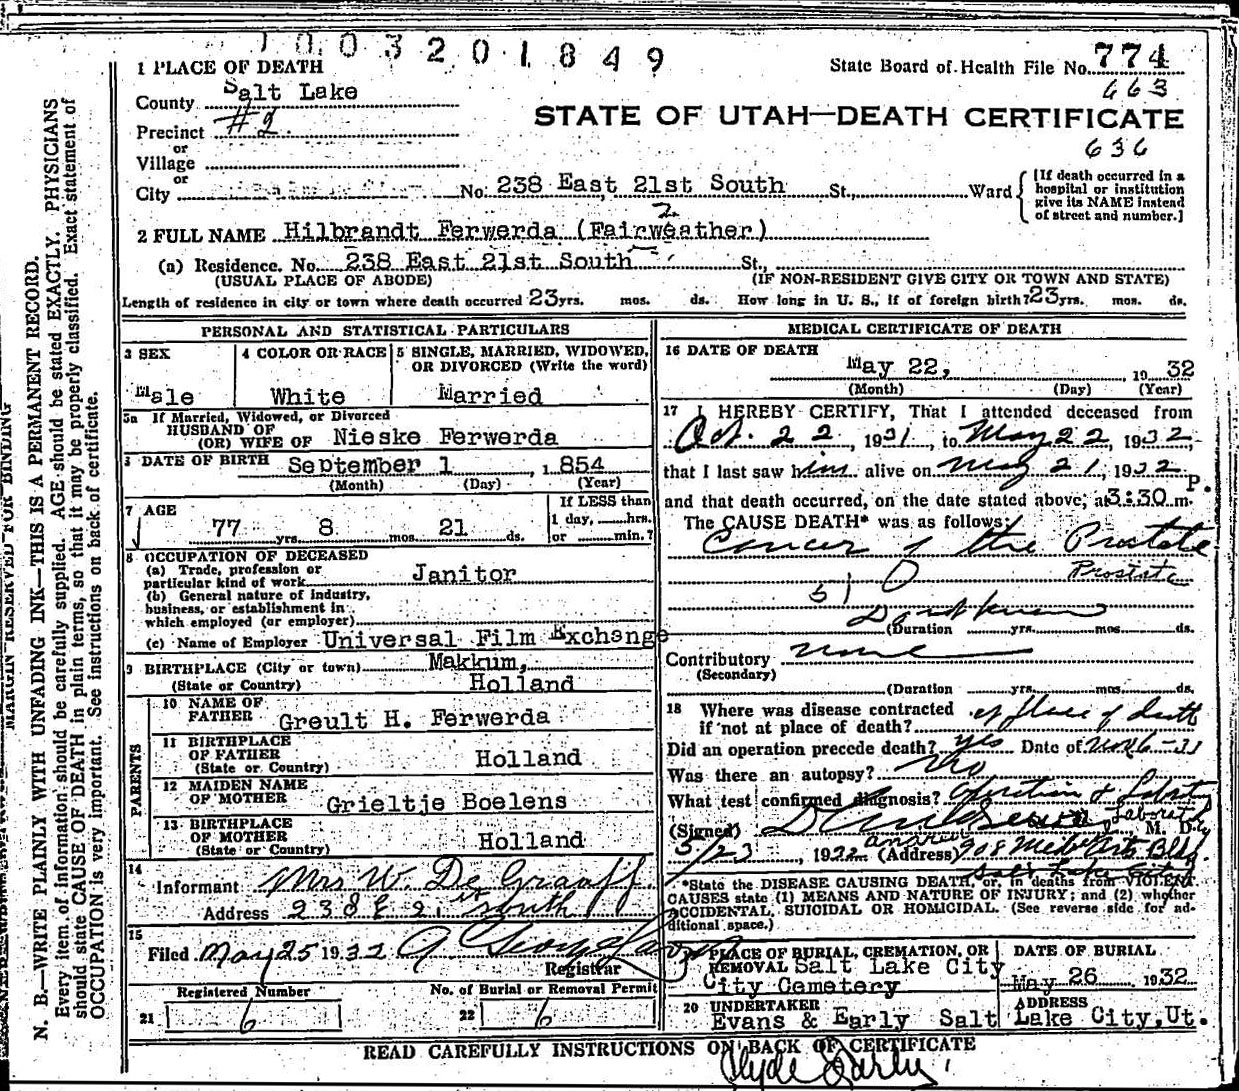 1003201849
1 PLACE OF DEATH
State Board of Health File No. 774
County Salt Lake
663
Precinct #2.
STATE OF UTAH—DEATH CERTIFICATE
or
636
Village
or
City No. 238 East 21st South St., Ward
[If death occurred in a hospital or institution give its NAME instead of street and number.]
2 FULL NAME Hilbrandt Ferwerda (Fairweather)
2
(a) Residence. No. 238 East 21st South St.,
(USUAL PLACE OF ABODE) (IF NON-RESIDENT GIVE CITY OR TOWN AND STATE)
Length of residence in city or town where death occurred 23 yrs. mos. ds. How long in U. S., if of foreign birth? 23 yrs. mos. ds.
PERSONAL AND STATISTICAL PARTICULARS
3 SEX
Male
4 COLOR OR RACE
White
5 SINGLE, MARRIED, WIDOWED,
OR DIVORCED (Write the word)
Married
5a If Married, Widowed, or Divorced
HUSBAND OF
(OR) WIFE OF Nieske Ferwerda
DATE OF BIRTH September 1, 1854
(Month) (Day) (Year)
7 AGE
77 yrs. 8 mos. 21 ds.
If LESS than
1 day, hrs.
or min.?
8 OCCUPATION OF DECEASED
(a) Trade, profession or
particular kind of work Janitor
(b) General nature of industry,
business, or establishment in
which employed (or employer)
(c) Name of Employer Universal Film Exchange
9 BIRTHPLACE (City or town) Makkum,
(State or Country) Holland
PARENTS
10 NAME OF
FATHER Greult H. Ferwerda
11 BIRTHPLACE
OF FATHER Holland
(State or Country)
12 MAIDEN NAME
OF MOTHER Grieltje Boelens
13 BIRTHPLACE
OF MOTHER Holland
(State or Country)
14
Informant Mrs W. De Graaff
Address 238 E 21st South
15
Filed May 25 1932
Registrar
Registered Number
21 6
No. of Burial or Removal Permit
22 6
MEDICAL CERTIFICATE OF DEATH
16 DATE OF DEATH
May 22, 1932
(Month) (Day) (Year)
17 I HEREBY CERTIFY, That I attended deceased from
Oct. 22, 1931, to May 22, 1932
that I last saw him alive on May 21, 1932
and that death occurred, on the date stated above, at 3:30 P. m.
The CAUSE DEATH* was as follows:
Cancer of the Prostate
Prostate
51
(Duration yrs. mos. ds.
Contributory none
(Secondary)
(Duration yrs. mos. ds.
18 Where was disease contracted
if not at place of death? at place of death
Did an operation precede death? Yes Date of Nov 6-31
Was there an autopsy? No
What test confirmed diagnosis? Operation &
(Signed) M. D.
5/23, 1932 (Address) 908 Med Arts Bldg.
Salt Lake
*State the DISEASE CAUSING DEATH, or, in deaths from VIOLENT
CAUSES state (1) MEANS AND NATURE OF INJURY; and (2) whether
ACCIDENTAL, SUICIDAL OR HOMICIDAL. (See reverse side for ad-
ditional space.)
PLACE OF BURIAL, CREMATION, OR
REMOVAL Salt Lake City
City Cemetery
DATE OF BURIAL
May 26 1932
20 UNDERTAKER
Evans & Early Salt
ADDRESS
Lake City, Ut.
READ CAREFULLY INSTRUCTIONS ON BACK OF CERTIFICATE
Clyde Early
MARGIN RESERVED FOR BINDING
N. B.—WRITE PLAINLY WITH UNFADING INK—THIS IS A PERMANENT RECORD.
Every item of information should be carefully supplied. AGE should be stated EXACTLY. PHYSICIANS
should state CAUSE OF DEATH in plain terms, so that it may be properly classified. Exact statement of
OCCUPATION is very important. See instructions on back of certificate.